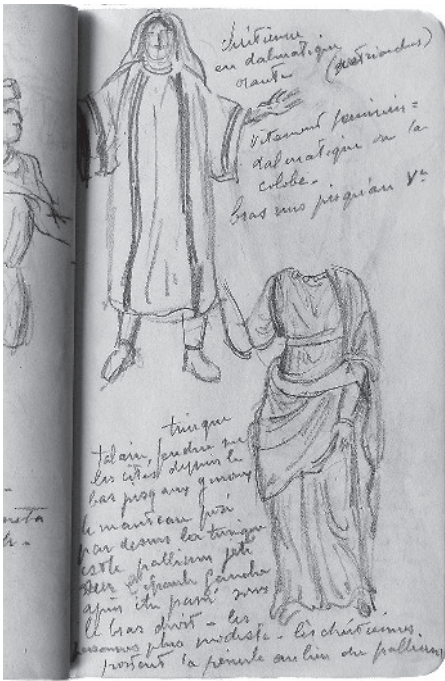 chrétienne
en dalmatique
orante
vêtement féminin =
dalmatique ou la
colobe.
bras nus jusqu'au Ve
tunique
talaire, fendue sur
les côtés depuis le
bas jusqu'aux genoux
le manteau posé
par dessus la tunique
est le pallium jeté
sur l'épaule gauche
après être passé sous
le bras droit - les
personnes plus modestes - les chrétiennes
portent la pénule au lieu du pallium